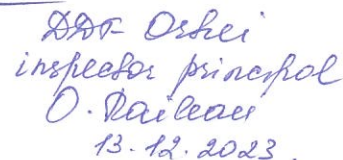 DDF Orhei
inspector principal
O. Railean
13.12.2023.